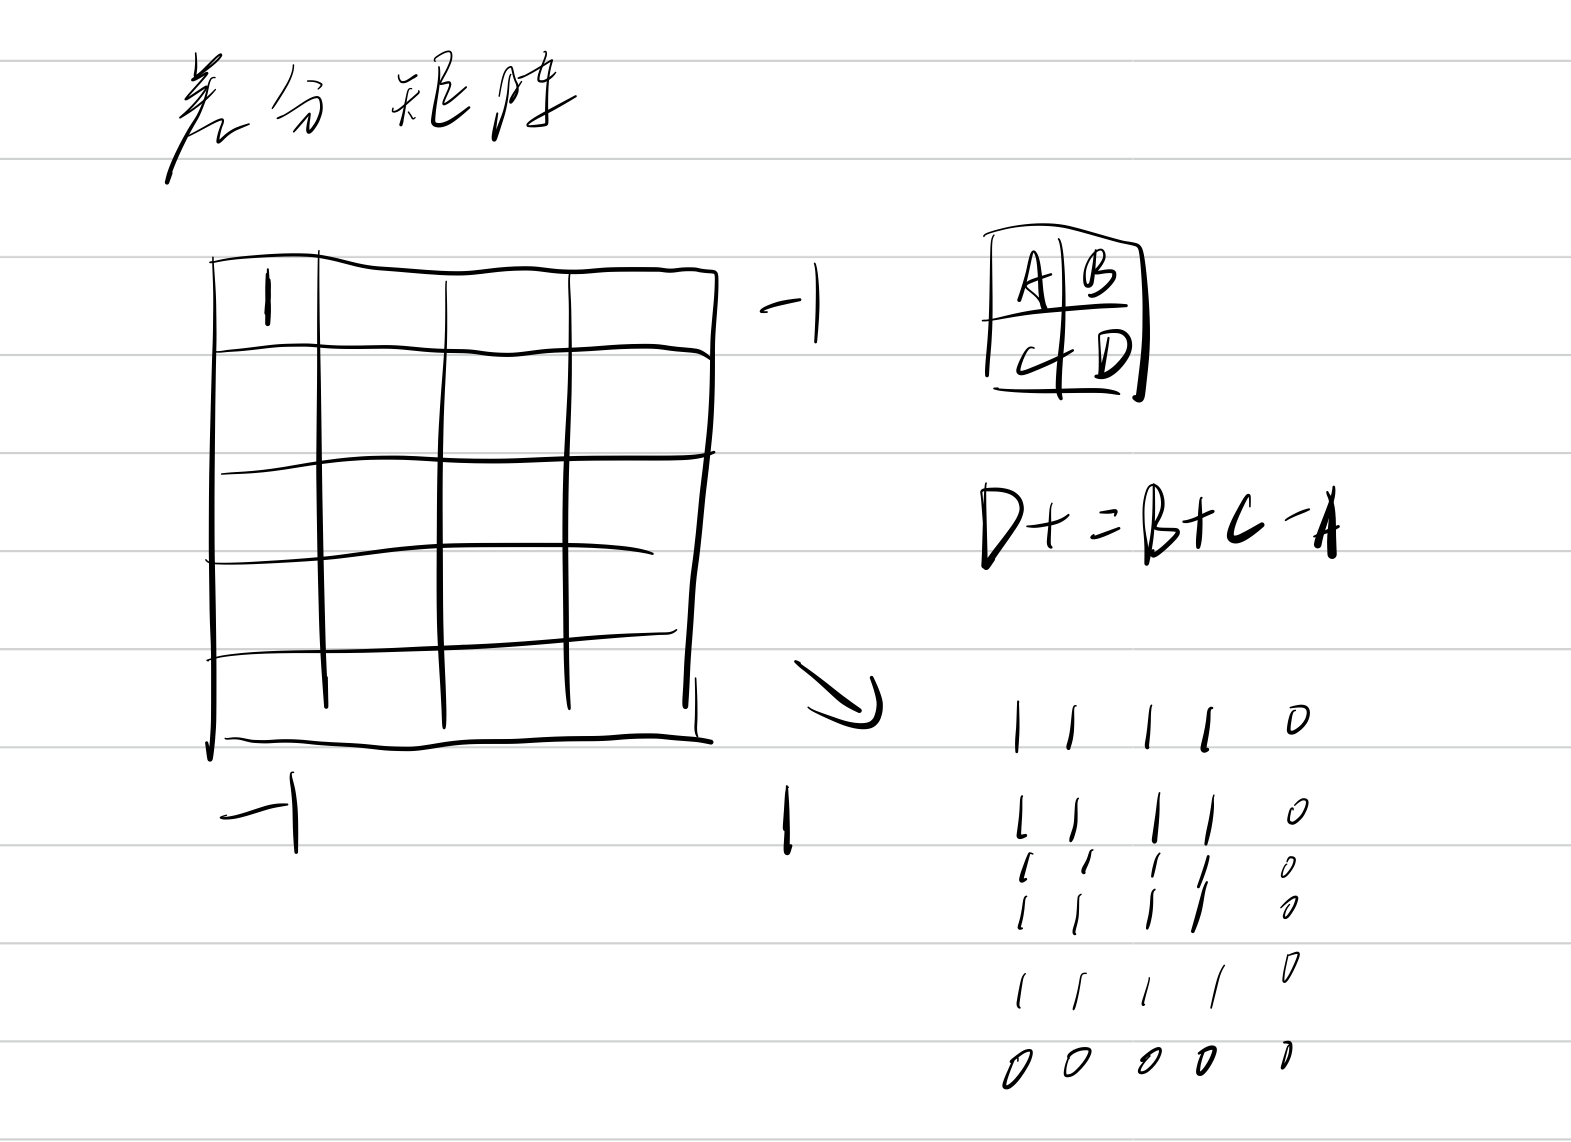 差分 矩阵
1 -1
A B
C D
D+=B+C-A
-1 1
1 1 1 1 0
1 1 1 1 0
1 1 1 1 0
1 1 1 1 0
1 1 1 1 0
0 0 0 0 0